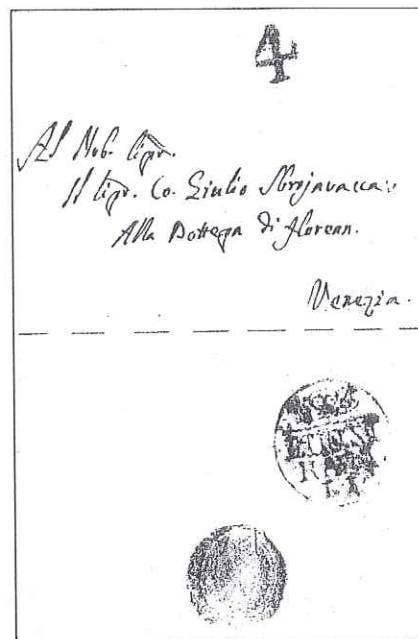 4
Al Nob. Sigr.
Il Sigr. Co. Giulio Sbrojavacca:
Alla Bottega di Florean.
Venezia.